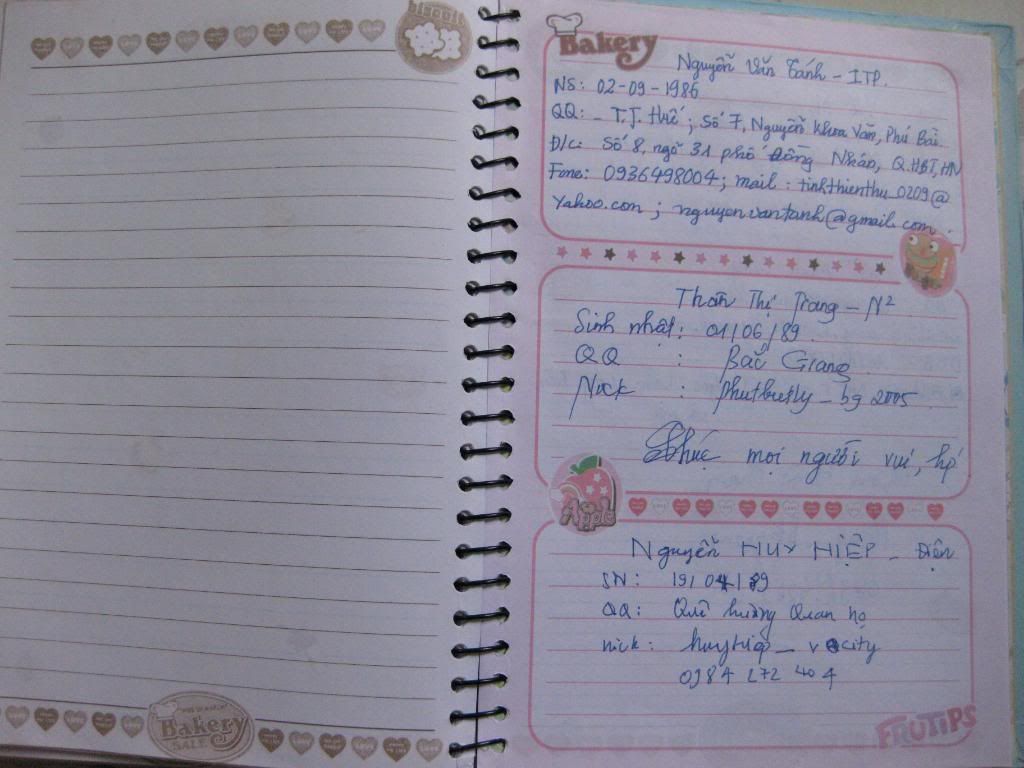 biscuit
Bakery
SALE
Bakery
Nguyễn Văn Tánh - ITP.
NS: 02-09-1986
QQ: - T.T. Huế; Số 7, Nguyễn Khoa Văn, Phú Bài
Đ/c: Số 8, ngõ 31 phố Đồng Nhân, Q.HBT, HN
Fone: 0936498004; mail: tinhthienthu_0209@
yahoo.com; nguyenvantanh@gmail.com.
Thân Thị Trang - N²
Sinh nhật: 01/06/89.
QQ : Bắc Giang
Nick : _bg 2005.
Chúc mọi người vui, hp
Apple
Nguyễn HUY HIỆP - Điện
SN: 19/04/89
QQ: Quê hương Quan họ
nick: huyhiep_
0984 272 404
FRUTIPS